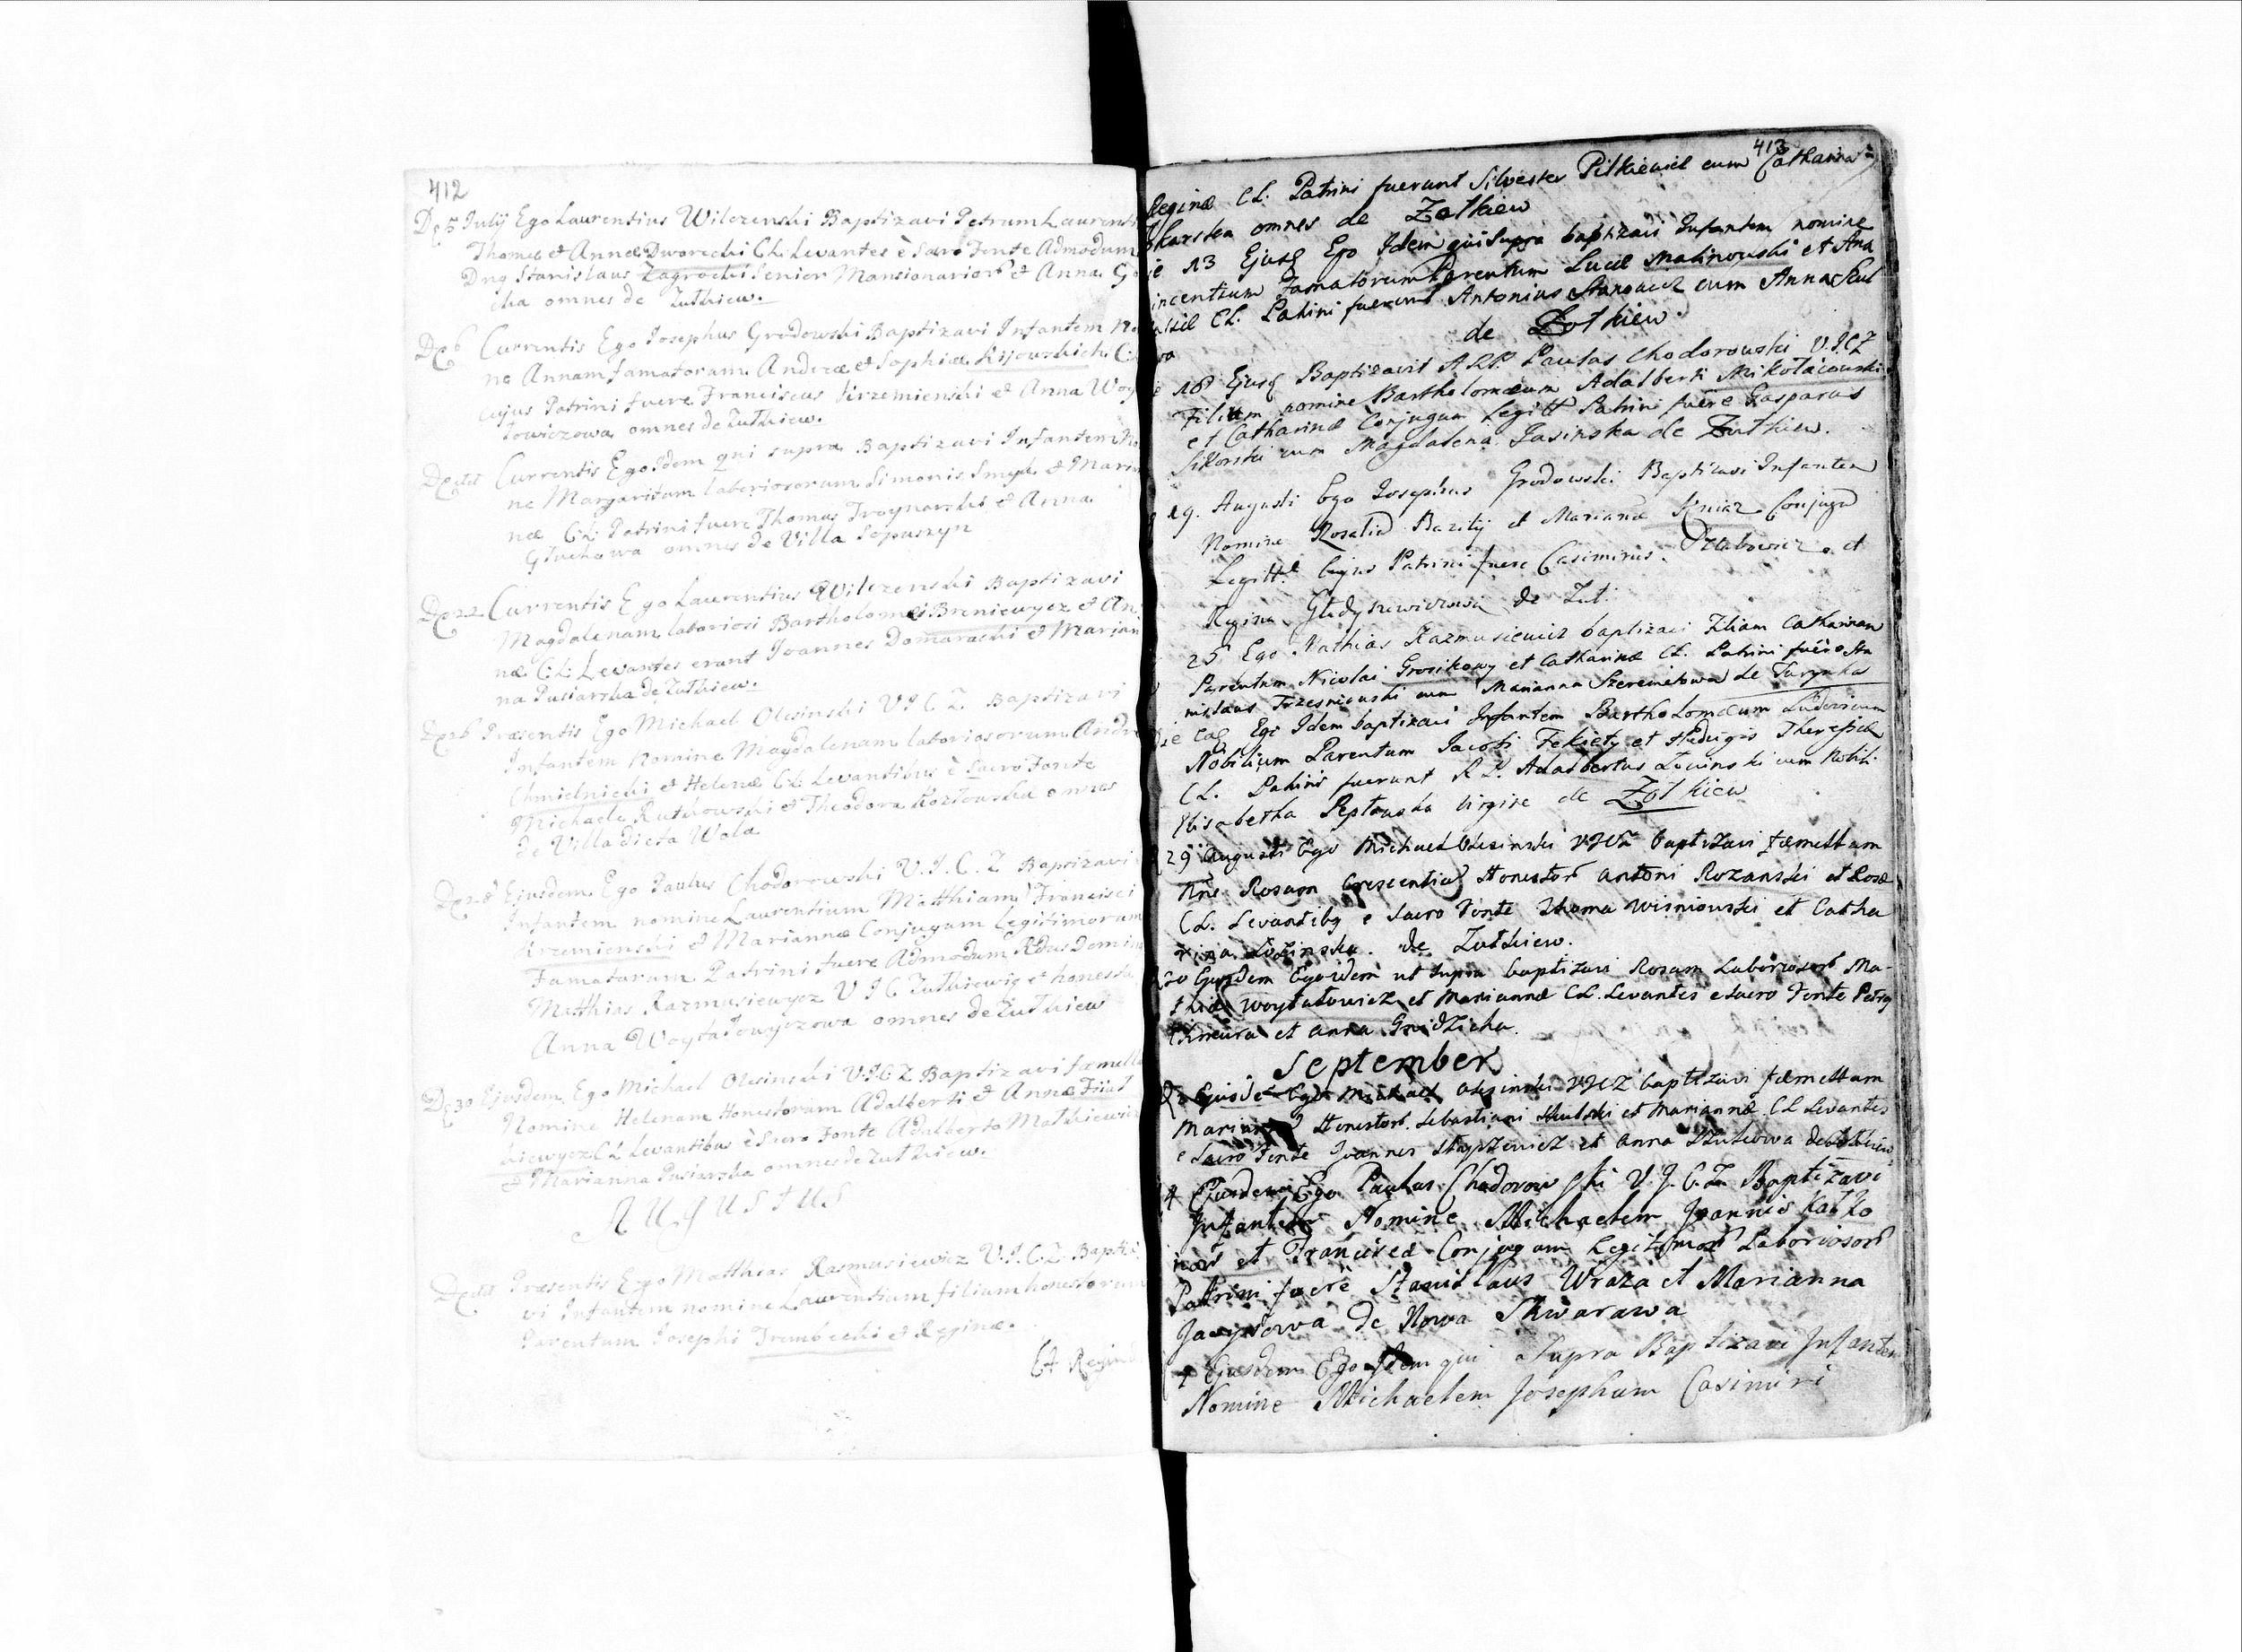 412
Die 5 Julij Ego Laurentius Wilczenski Baptizavi Petrum Laurenti
Thomæ et Annæ Dworecki C:L: Levantes è Sacro Fonte Admodum
Dnq Stanislaus Zagrocki Senior Mansionarior et Anna
cka omnes de Zulkiew.
Die 6 Currentis Ego Josephus Grodowski Baptizavi Infantem No
ne Annam famatorum Andreæ et Sophiæ Kijowskich C:
cujus Patrini fuere Franciscus Krzemienski et Anna Woy
towiczowa omnes de Zulkiew.
Currentis Ego Idem qui supra Baptizavi Infantem No
ne Margaritam laboriosorum Simonis et Marian
næ C:L: Patrini fuere Thomas Troynarski et Anna
Gluchowa omnes de Villa Sopuszyn
Die 22 Currentis Ego Laurentius Wilczenski Baptizavi
Magdalenam laboriosi Bartholomæi Breniewycz et An
næ C:L: Levantes erant Joannes Domaracki et Marian
na Pusiarska de Zulkiew.
Die 26 Præsentis Ego Michael Olesinski V I C Z Baptizavi
Infantem Nomine Magdalenam laboriosorum Andre
Chmielnicki et Helenæ C:L: Levantibus è Sacro Fonte
Michaele Rutkowski et Theodora Kozlowska omnes
de Villa dicta Wola
Die 28 Ejusdem Ego Paulus Chodorowski V. I. C. Z Baptizavi
Infantem nomine Laurentium Matthiam Francisci
Krzemienski et Mariannæ Conjugum Legitimorum
Famatorum Patrini fuere Admodum Rdus Domin
Matthias Razmusiewycz V I C Zulkiewię et honesta
Anna Woytatowyczowa omnes de Zulkiew
Die 30 Ejusdem Ego Michael Olesinski V.I.C Z Baptizavi famella
Nomine Helenam Honestorum Adalberti et Annæ
kiewycz C L Levantibus è Sacro Fonte Adalberto Matkiewicz
et Marianna Pusiarska omnes de Zulkiew.
AUGUSTUS
Præsentis Ego Matthias Rasmusiewicz V.I.C.Z. Bapti
vi Infantem nomine Laurentium filium honestorum
Parentum Josephi Trembecki et Reginæ.
et Regin
413
Reginæ CL. Patrini fuerunt Silvester Pitkiewicz cum Catharina
karska omnes de Zolkiew
ie 13 Ejusq Ego Idem qui supra baptizavi Infantem nomine
incentium Famatorum Parentum Lucæ Malinowski et Ana
CL. Patrini fuerunt Antonius cum Anna
de Zolkiew
18 Ejusq Baptizavit A.R.P. Paulus Chodorowski V.I.C.Z
Filium nomine Bartholomæum Adalberti Mikołaiowski
et Catharinæ Conjugum Legitt Patrini fuere Gasparus
Sikorski cum Magdalena Jasinska de Zulkiew.
19. Augusti Ego Josephus Grodowski Baptizavi Infantem
Nomine Rosalia Bazilij et Marianæ Conjugu
Legitt. Cujus Patrini fuere Casimirus et
Regina Gładyszewiczowa de Zul:
25 Ego Mathias Razmusiewicz baptizavi Filiam Catharinam
Parentum Nicolai Grosikowy et Catharinæ CL. Patrini fuere Sta
nislaus Trzesniowski cum Marianna Szeremetowa de Turynka
Ego Idem baptizavi Infantem Bartholomæum Ludovicum
Nobilium Parentum Jacobi Fekiety et Hedvigis Theresiæ
CL. Patrini fuerunt R.P. Adalbertus Lovinski cum Nobili
Elisabetha Peptowska Virgine de Zolkiew
29 Augusti Ego Michael Olesinski VICZ baptizavi fæmellam
Nne Rosam Crescentia Honestor Antoni Rozanski et Rosæ
CL. Levantibq e Sacro Fonte Thoma Wisniowski et Catha
rina Lozinska. de Zulkiew.
Ejusdem Ego idem ut supra baptizavi Rosam Laborsosor Ma-
thiæ Woytalowicz et Mariannæ CL. Levantes e Sacro Fonte Petrq
et Anna Gnidzicha.
September
Ejusde Ego Michael Olesinski VICZ baptizavi fæmellam
Honestor. Sebastiani et Mariannæ CL Levantes
e Sacro Fonte Joannes et Anna de Zolkiew
4 Ejusdem Ego Paulus Chodorowski V.J.C.Z. Baptizavi
Infantem Nomine Michaelem Joannis
et Franciscæ Conjugum Legitimor Laboriosor
Patrini fuere Stanislaus Wraza et Marianna
de Nowa Skwarawa
4 Ejusdem Ego Idem qui Supra Baptizavi Infantem
Nomine Michaelem Josephum Casimiri